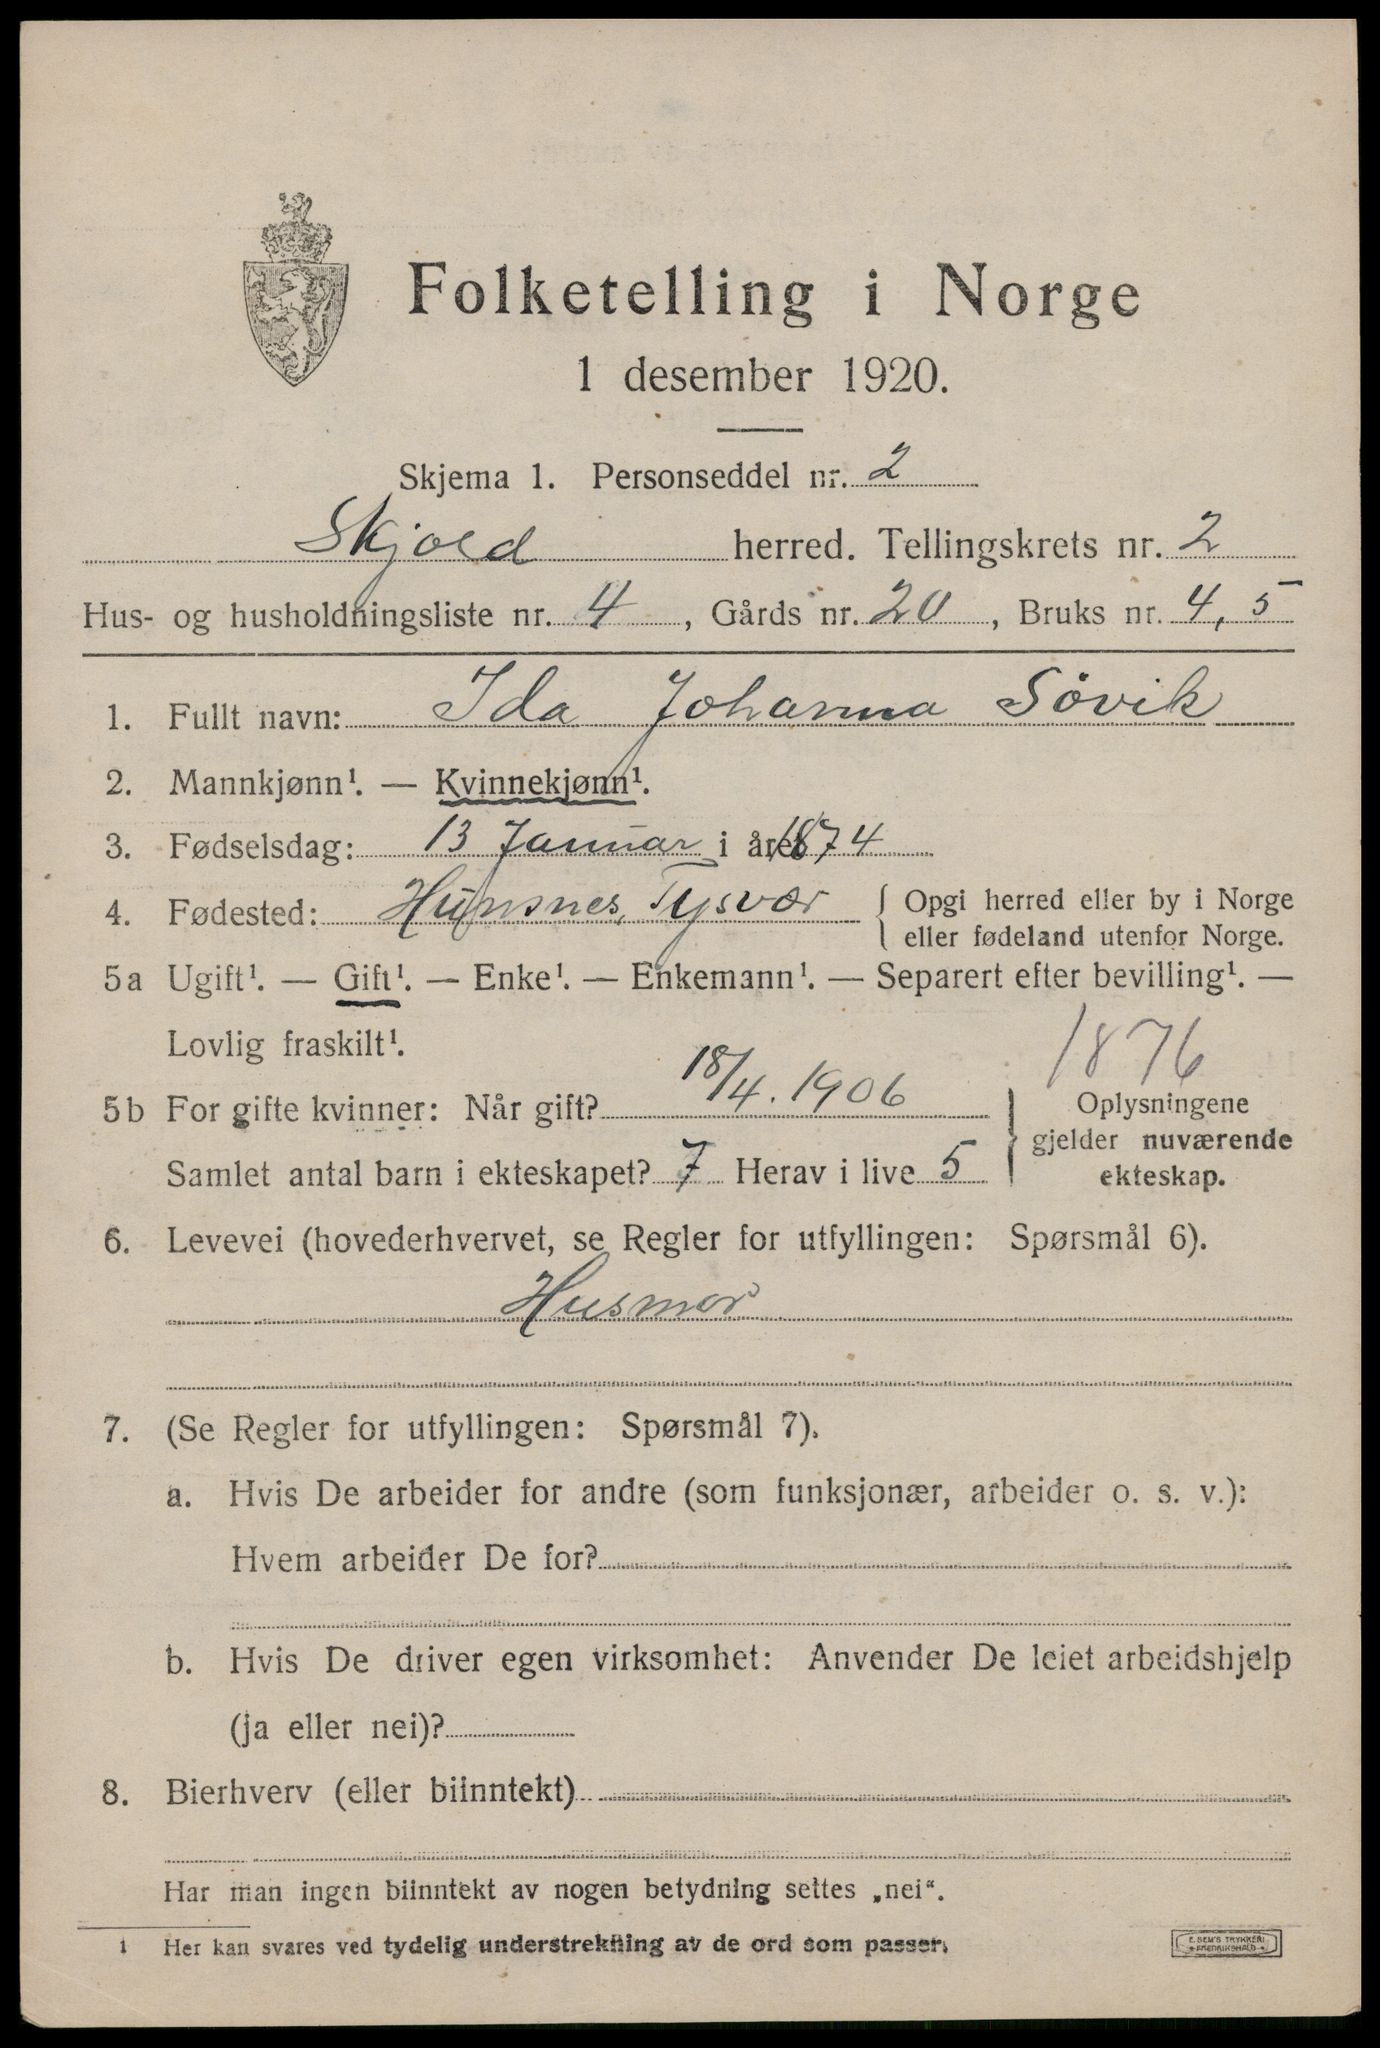 Folketelling i Norge
1 desember 1920.
Skjema 1. Personseddel nr. 2
Skjold herred. Tellingskrets nr. 2
Hus- og husholdningsliste nr. 4, Gårds nr. 20, Bruks nr. 4, 5
1. Fullt navn: Ida Johanna Sövik
2. Mannkjønn¹. — Kvinnekjønn¹.
3. Fødselsdag: 13 Januar i året 1874
4. Fødested: Hunsnes, Tysvær { Opgi herred eller by i Norge
eller fødeland utenfor Norge.
5a Ugift¹. — Gift¹. — Enke¹. — Enkemann¹. — Separert efter bevilling¹. —
Lovlig fraskilt¹.
1876
5b For gifte kvinner: Når gift? 18/4. 1906 } Oplysningene
gjelder nuværende
Samlet antal barn i ekteskapet? 7 Herav i live 5 ekteskap.
6. Levevei (hovederhvervet, se Regler for utfyllingen: Spørsmål 6).
Husmor
7. (Se Regler for utfyllingen: Spørsmål 7).
a. Hvis De arbeider for andre (som funksjonær, arbeider o. s. v.):
Hvem arbeider De for?
b. Hvis De driver egen virksomhet: Anvender De leiet arbeidshjelp
(ja eller nei)?
8. Bierhverv (eller biinntekt)
Har man ingen biinntekt av nogen betydning settes „nei“.
1 Her kan svares ved tydelig understrekning av de ord som passer.
E. SEM'S TRYKKERI
FREDRIKSHALD